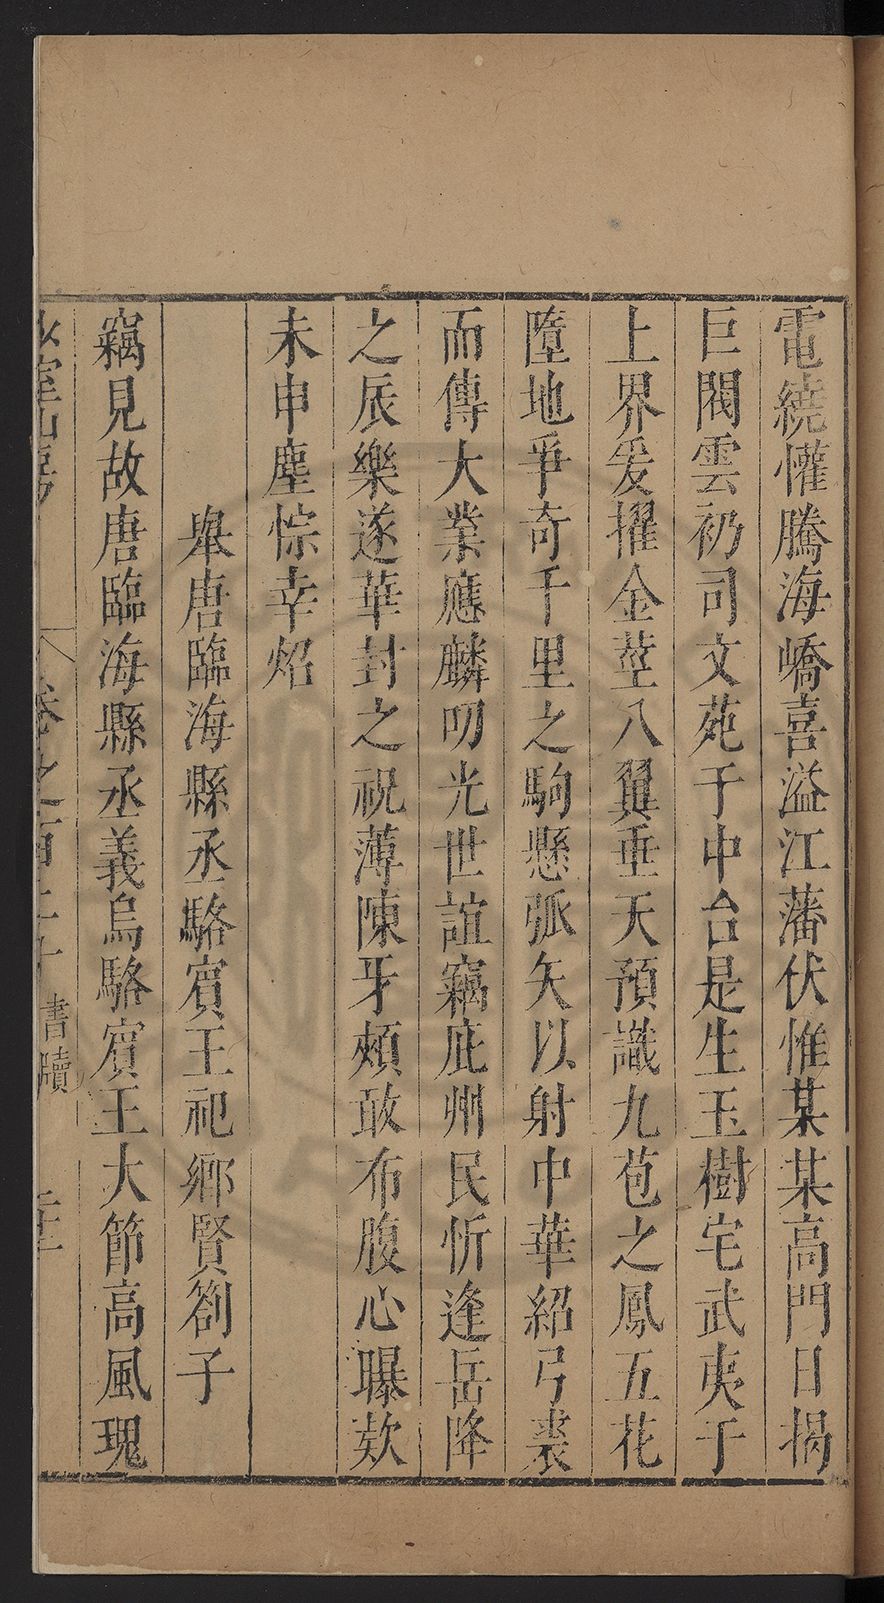 電繞懽騰海嶠喜溢江藩伏惟某某高門日揭
巨閥雲礽司文苑于中台是生玉樹宅武夷于
上界爰擢金莖八翼垂天預識九苞之鳳五花
墮地爭奇千里之駒懸弧矢以射中華紹弓裘
而傳大業應麟叨光世誼竊庇州民忻逢岳降
之辰樂遂華封之祝薄陳牙頰敢布腹心曝欵
未申塵悰幸炤
舉唐臨海縣丞駱賓王祀鄉賢劄子
竊見故唐臨海縣丞義烏駱賓王大節高風瑰
少室山房
卷之百二十 書牘